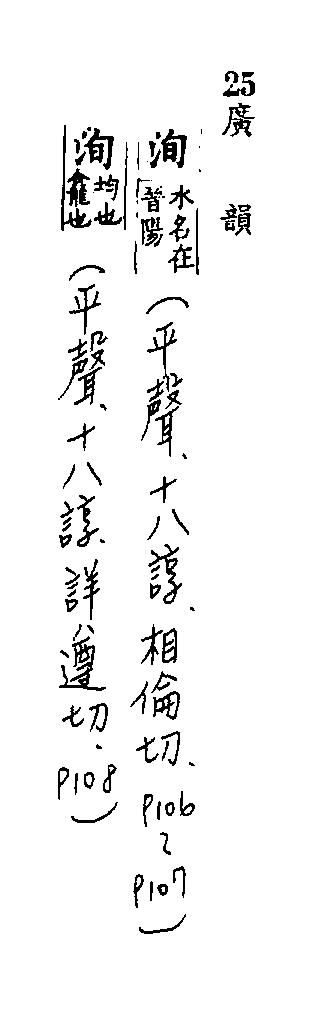 25廣韻
洵 水名在晉陽 (平聲、十八諄、相倫切、P106~P107)
洵 均也龕也 (平聲、十八諄、詳遵切、P108)